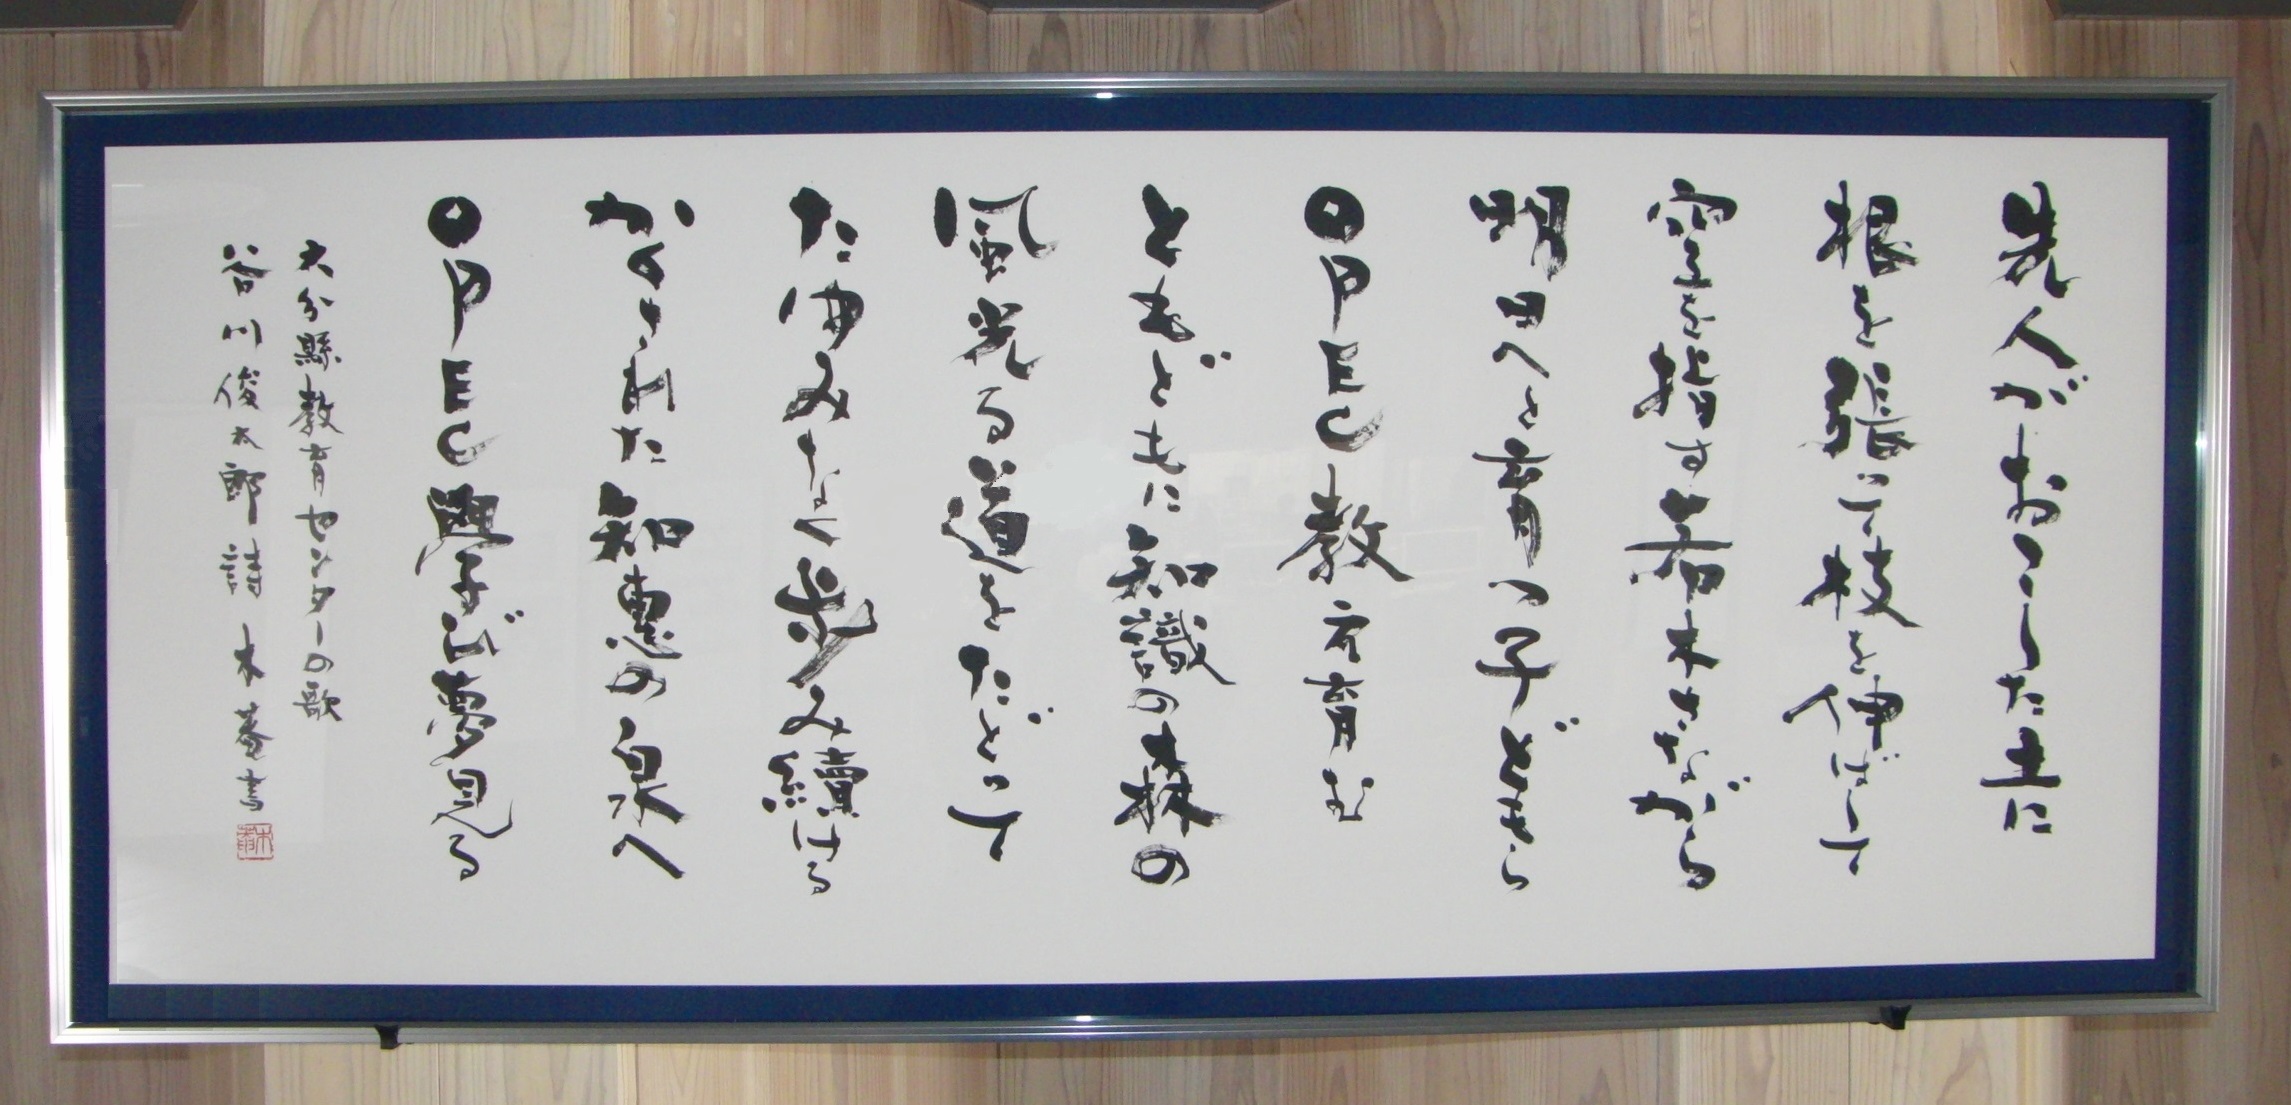 先人がおこした土に
根を張って枝を伸ばして
空を指す若木さながら
明日へと育つ子どもら
OPEC教え育む
ともどもに知識の森の
風光る道をたどって
たゆみなく歩み續ける
かくされた知惠の泉へ
OPEC學び夢見る
大分縣教育センターの歌
谷川俊太郎詩 木菴書